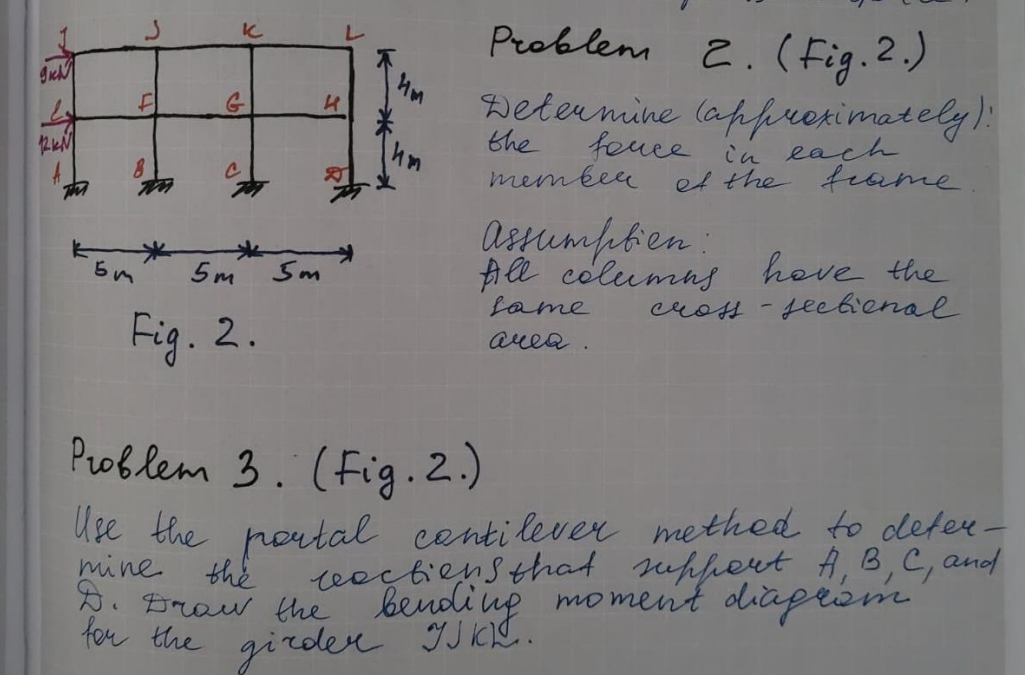 I J K L
9kN
4m
E F G H
12kN
4m
A B C D
5m 5m 5m
Fig. 2.
Problem 2. (Fig. 2.)
Determine (approximately):
the force in each
member of the frame.
Assumption:
All columns have the
same cross-sectional
area.
Problem 3. (Fig. 2.)
Use the portal cantilever method to deter-
mine the reactions that support A, B, C, and
D. Draw the bending moment diagram
for the girder IJKL.